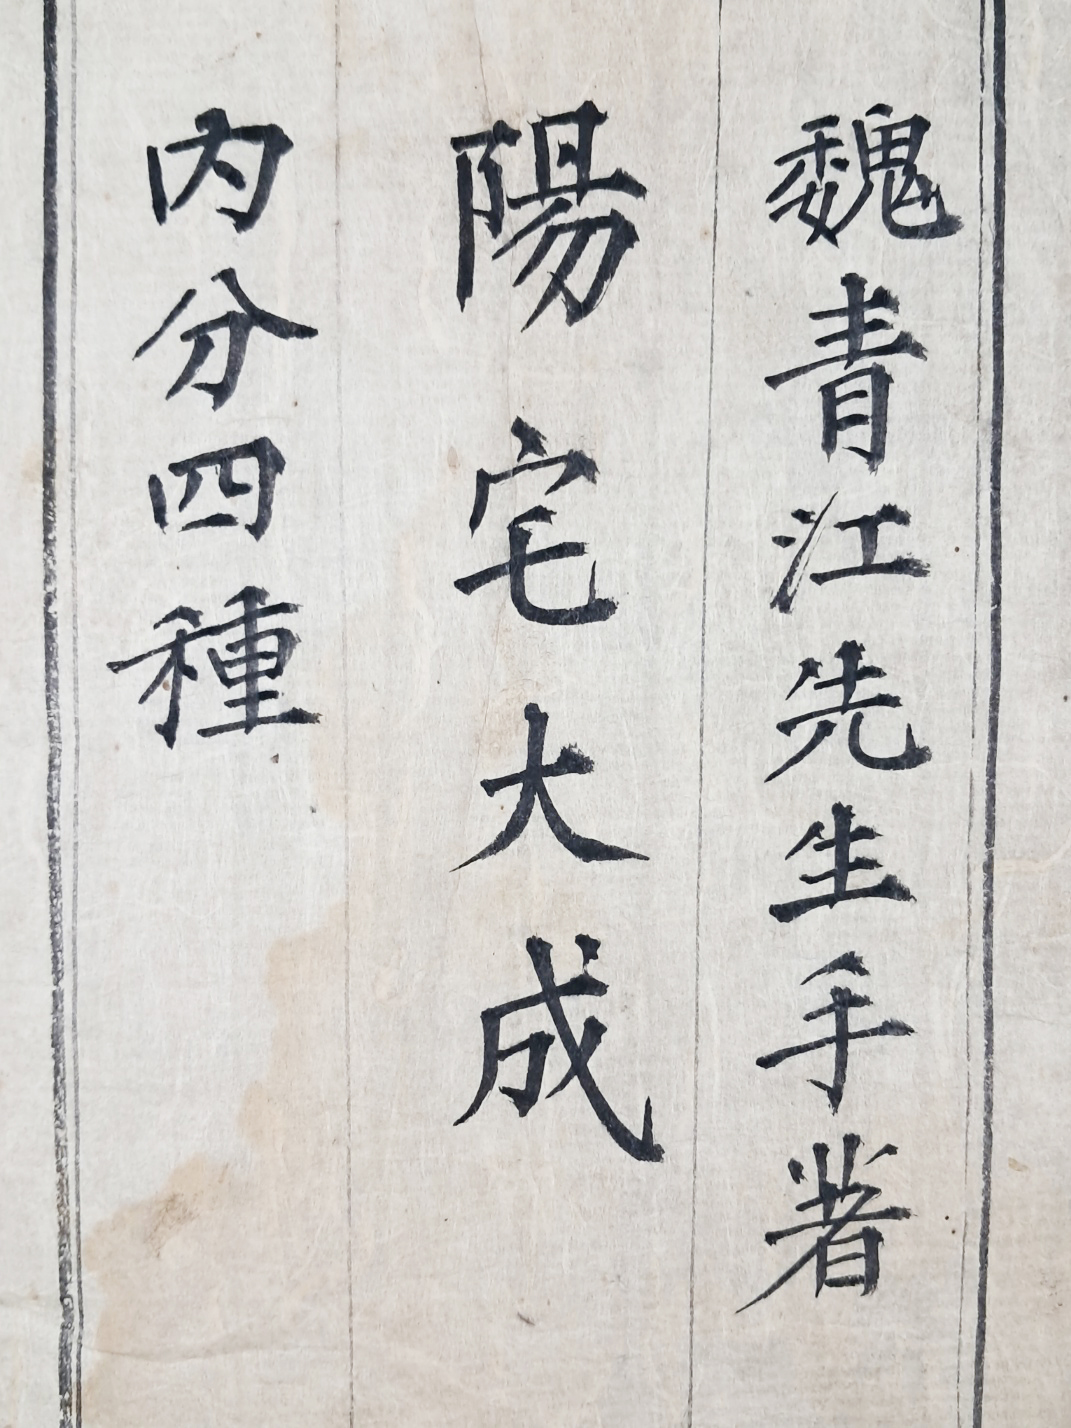 魏青江先生手著
陽宅大成
内分四種